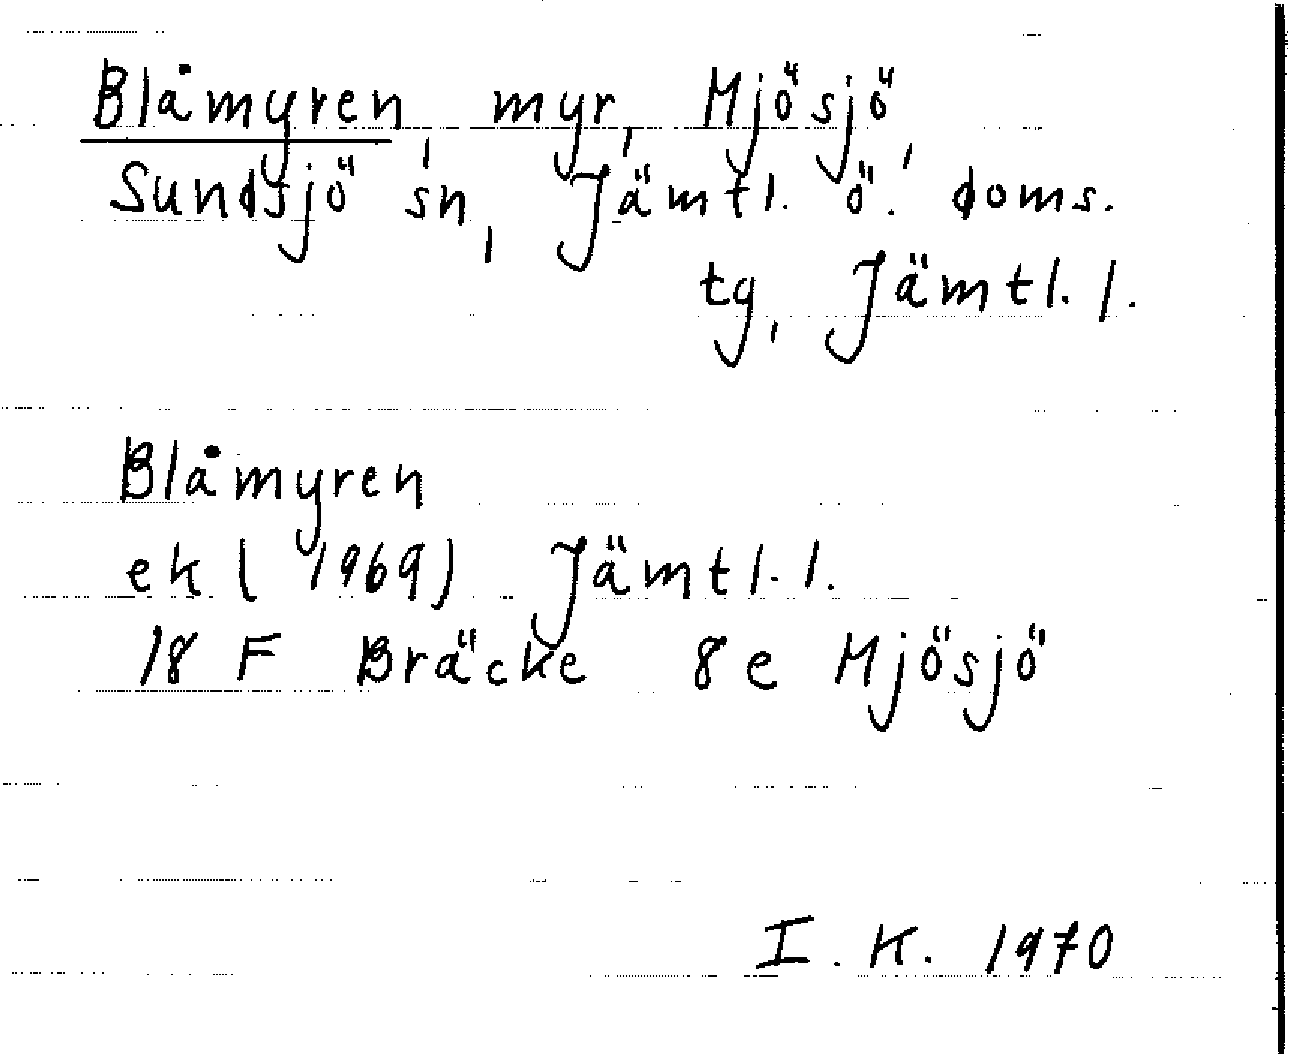 Blåmyren, myr, Mjösjö,
Sundsjö sn, Jämtl. ö. doms.
tg, Jämtl. l.
Blåmyren
ek (1969) Jämtl. l.
18 F Bräcke 8 e Mjösjö
I. K. 1970